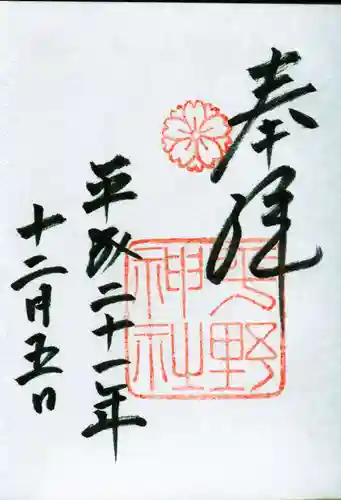 奉拝
平野神社
平成二十一年
十二月五日